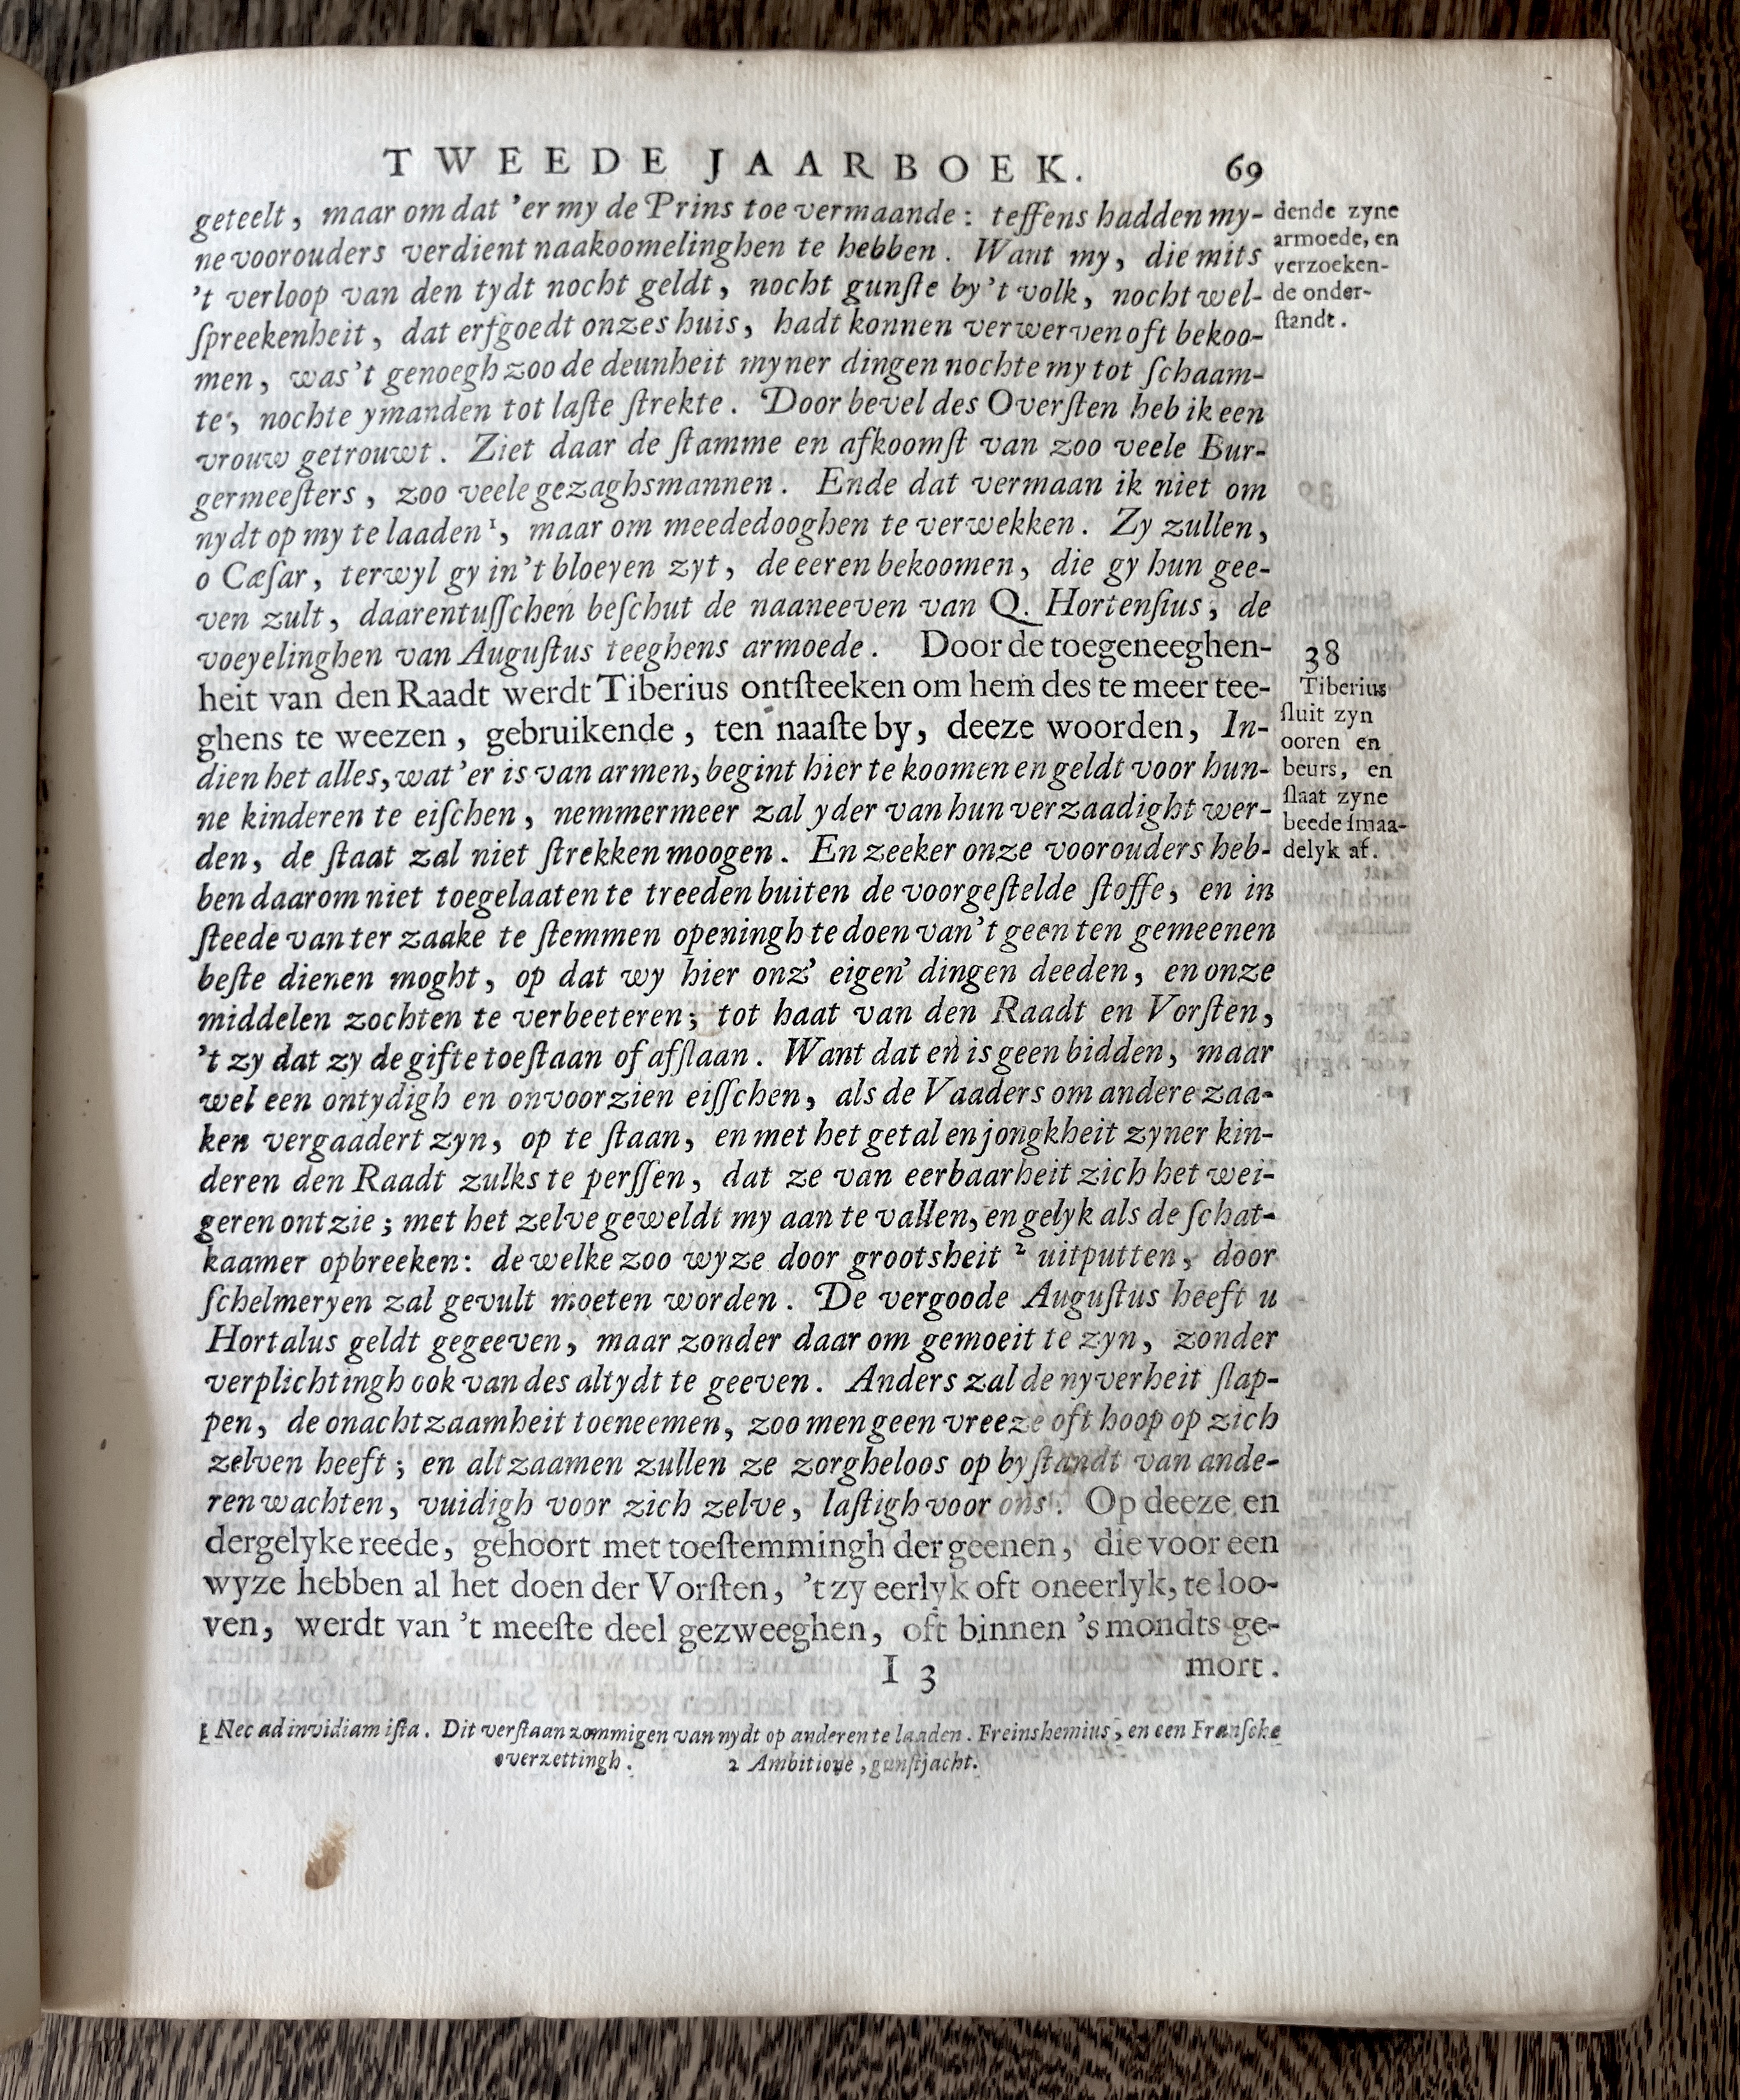 TWEEDE JAARBOEK. 69
geteelt, maar om dat 'er my de Prins toe vermaande: teffens hadden my-
ne voorouders verdient naakoomelinghen te hebben. Want my, die mits
't verloop van den tydt nocht geldt, nocht gunſte by 't volk, nocht wel-
ſpreekenheit, dat erfgoedt onzes huis, hadt konnen verwerven oft bekoo-
men, was 't genoegh zoo de deunheit myner dingen nochte my tot ſchaam-
te, nochte ymanden tot laſte ſtrekte. Door bevel des Overſten heb ik een
vrouw getrouwt. Ziet daar de ſtamme en afkoomſt van zoo veele Bur-
germeeſters, zoo veele gezaghsmannen. Ende dat vermaan ik niet om
nydt op my te laaden¹, maar om meededooghen te verwekken. Zy zullen,
o Cæſar, terwyl gy in 't bloeyen zyt, de eeren bekoomen, die gy hun gee-
ven zult, daarentuſſchen beſchut de naaneeven van Q. Hortenſius, de
voeyelinghen van Auguſtus teeghens armoede. Door de toegeneeghen-
heit van den Raadt werdt Tiberius ontſteeken om hem des te meer tee-
ghens te weezen, gebruikende, ten naaſte by, deeze woorden, In-
dien het alles, wat 'er is van armen, begint hier te koomen en geldt voor hun-
ne kinderen te eiſchen, nemmermeer zal yder van hun verzaadight wer-
den, de ſtaat zal niet ſtrekken moogen. En zeeker onze voorouders heb-
ben daarom niet toegelaaten te treeden buiten de voorgeſtelde ſtoffe, en in
ſteede van ter zaake te ſtemmen openingh te doen van 't geen ten gemeenen
beſte dienen moght, op dat wy hier onz' eigen' dingen deeden, en onze
middelen zochten te verbeeteren; tot haat van den Raadt en Vorſten,
't zy dat zy de gifte toeſtaan of afſlaan. Want dat en is geen bidden, maar
wel een ontydigh en onvoorzien eiſſchen, als de Vaaders om andere zaa-
ken vergaadert zyn, op te ſtaan, en met het getal en jongkheit zyner kin-
deren den Raadt zulks te perſſen, dat ze van eerbaarheit zich het wei-
geren ontzie; met het zelve geweldt my aan te vallen, en gelyk als de ſchat-
kaamer opbreeken: de welke zoo wyze door grootsheit ² uitputten, door
ſchelmeryen zal gevult moeten worden. De vergoode Auguſtus heeft u
Hortalus geldt gegeeven, maar zonder daar om gemoeit te zyn, zonder
verplichtingh ook van des altydt te geeven. Anders zal de nyverheit ſlap-
pen, de onachtzaamheit toeneemen, zoo men geen vreeze oft hoop op zich
zelven heeft; en altzaamen zullen ze zorgheloos op byſtandt van ande-
ren wachten, vuidigh voor zich zelve, laſtigh voor ons. Op deeze en
dergelyke reede, gehoort met toeſtemmingh der geenen, die voor een
wyze hebben al het doen der Vorſten, 't zy eerlyk oft oneerlyk, te loo-
ven, werdt van 't meeſte deel gezweeghen, oft binnen 's mondts ge-
I 3 mort.
1 Nec ad invidiam iſta. Dit verſtaan zommigen van nydt op anderen te laaden. Freinshemius, en een Franſche
overzettingh. 2 Ambitione, gunſtjacht.
dende zyne
armoede, en
verzoeken-
de onder-
ſtandt.
38
Tiberius
ſluit zyn
ooren en
beurs, en
ſlaat zyne
beede ſmaa-
delyk af.